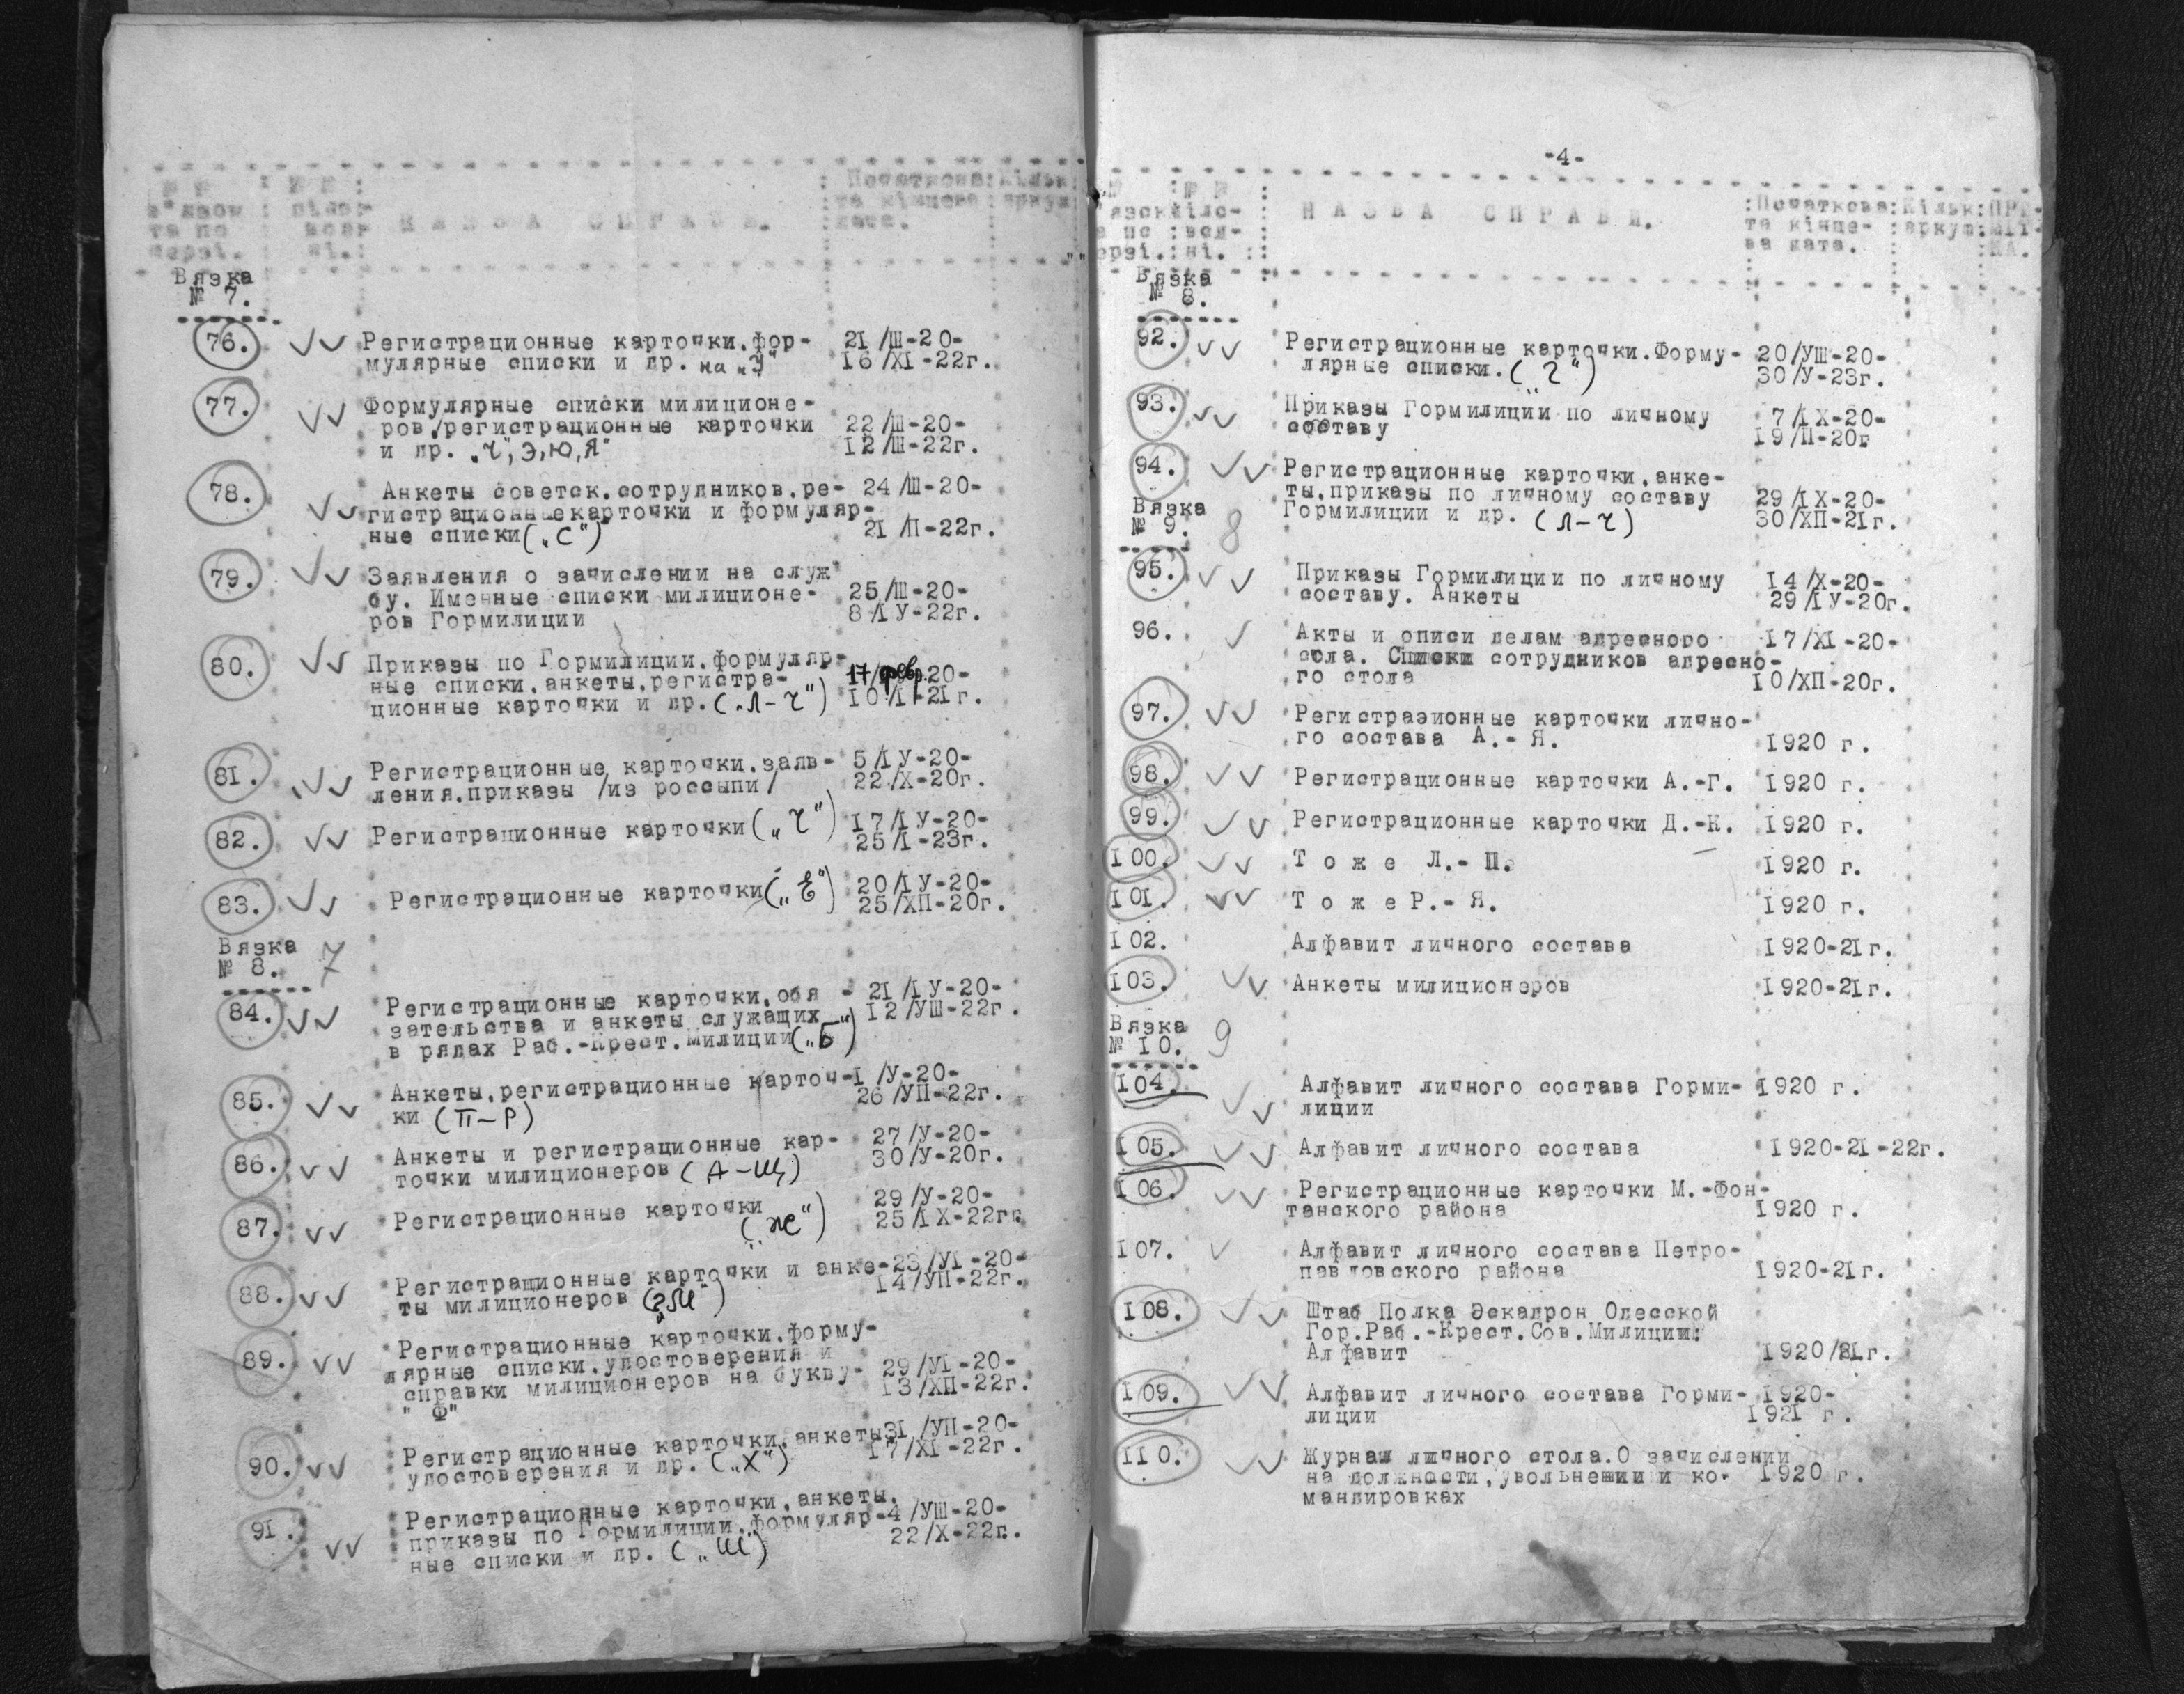 № №
в"язок
та по
черзі.
№ №
Н А З В А   С П Р А В И.
Початкова
та кінцева
дата.
Кільк.
аркуш.
Вязка
№ 7.
76. Регистрационные карточки, фор- 21/Ш-20-
мулярные списки и др. на „У" 16/ХІ-22г.
77. Формулярные списки милиционе-
ров,регистрационные карточки 22/Ш-20-
и др. „Ч", Э, Ю, Я" 12/Ш-22г.
78. Анкеты советск.сотрудников,ре- 24/Ш-20-
гистрационные карточки и формуляр-
ные списки („С") 21/П-22г.
79. Заявления о зачислении на служ
бу. Именные списки милиционе- 25/Ш-20-
ров Гормилиции 8/ІУ-22г.
80. Приказы по Гормилиции,формуляр-
ные списки,анкеты,регистра- 17/фев.20-
ционные карточки и др. („Л-Ч") 10/І-21г.
81. Регистрационные карточки,заяв- 5/ІУ-20-
ления,приказы /из россыпи/ 22/Х-20г.
82. Регистрационные карточки („Ч") 17/ІУ-20-
25/І-23г.
83. Регистрационные карточки („Е") 20/ІУ-20-
25/ХП-20г.
Вязка
№ 8. 7
84. Регистрационные карточки,обя - 21/ІУ-20-
зательства и анкеты служащих 12/УШ-22г.
в рядах Раб.-Крест.Милиции („Б")
85. Анкеты,регистрационные карточ-1/У-20-
ки (П-Р) 26/УП-22г.
86. Анкеты и регистрационные кар- 27/У-20-
точки милиционеров (А-Щ) 30/У-20г.
87. Регистрационные карточки 29/У-20-
(„Ж") 25/ІХ-22гг
88. Регистрационные карточки и анке-23/УІ-20-
ты милиционеров 14/УП-22г.
89. Регистрационные карточки,форму-
лярные списки,удостоверения и
справки милиционеров на букву- 29/УІ-20-
" Ф" 13/ХП-22г.
90. Регистрационные карточки,анкеты31/УП-20-
удостоверения и др. („Х") 17/ХІ-22г.
91. Регистрационные карточки,анкеты,
приказы по Гормилиции,формуляр-4/УШ-20-
ные списки и др. („Ш") 22/Х-22г.
-4-
Н А З В А   С П Р А В И.
Початкова
та кінце-
ва дата.
Кільк.
аркуш.
ПРИ-
МІТ-
КА.
Вязка
№ 8.
92. Регистрационные карточки.Форму- 20/УШ-20-
лярные списки. („Г") 30/У-23г.
93. Приказы Гормилиции по личному 7/ІХ-20-
составу 19/П-20г
94. Регистрационные карточки,анке-
ты,приказы по личному составу 29/ІХ-20-
Гормилиции и др. (Л-Ч) 30/ХП-21г.
Вязка
№ 9. 8
95. Приказы Гормилиции по личному 14/Х-20-
составу. Анкеты 29/ІУ-20г.
96. Акты и описи делам адресного 17/ХІ-20-
стла. Списки сотрудников адресно-
го стола 10/ХП-20г.
97. Регистразионные карточки лично-
го состава А.- Я. 1920 г.
98. Регистрационные карточки А.-Г. 1920 г.
99. Регистрационные карточки Д.-К. 1920 г.
100. Т о ж е Л.- П. 1920 г.
101. Т о ж е Р.- Я. 1920 г.
102. Алфавит личного состава 1920-21г.
103. Анкеты милиционеров 1920-21г.
Вязка
№ 10. 9
104. Алфавит личного состава Горми- 1920 г.
лиции
105. Алфавит личного состава 1920-21-22г.
106. Регистрационные карточки М.-Фон-
танского района 1920 г.
107. Алфавит личного состава Петро-
павловского района 1920-21г.
108. Штаб Полка Эскадрон Одесской
Гор.Раб.-Крест.Сов.Милиции:
Алфавит 1920/21г.
109. Алфавит личного состава Горми- 1920-
лиции 1921 г.
110. Журнал личного стола.О зачислении
на должности,увольнении и ко- 1920 г.
мандировках